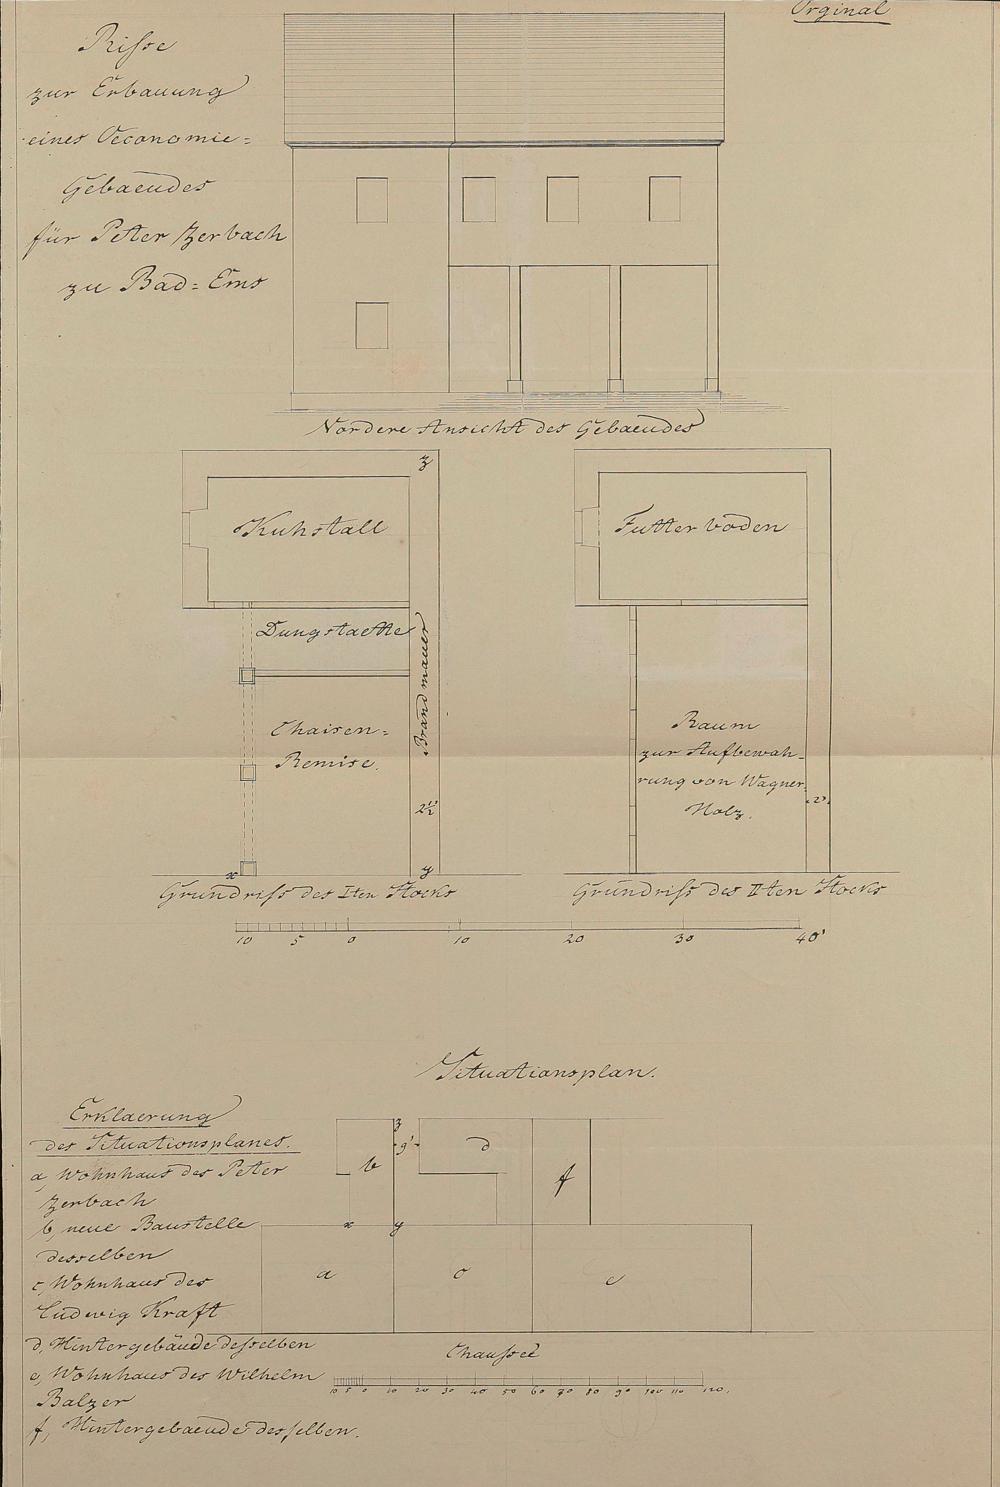 Orginal
Risse
zur Erbauung
eines Oeconomie=
Gebaeudes
für Peter Zerbach
zu Bad=Ems
Vordere Ansicht des Gebaeudes
z
Kuhstall
Dungstaette
Brandmauer
Chaisen=
Remise.
2½'
x
y
Grundriss des Iten Stocks
Futterboden
Raum
zur Aufbewah-
rung von Wagner
Holz.
2'
Grundriss des IIten Stocks
10 5 0 10 20 30 40'
Situationsplan.
Erklaerung
des Situationsplanes.
a, Wohnhaus des Peter
Zerbach
b, neue Baustelle
desselben
c, Wohnhaus des
Ludwig Kraft
d, Hintergebäude desselben
e, Wohnhaus des Wilhelm
Balzer
f, Hintergebaeude desselben.
z
9'
b
d
f
x
y
a
c
e
Chaussee
10 5 0 10 20 30 40 50 60 70 80 90 100 110 120.